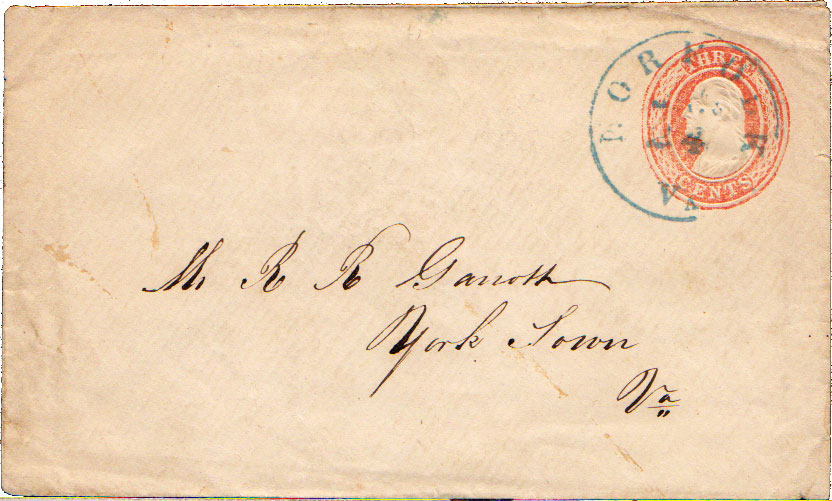 NORFOLK
Va
THREE
CENTS
Mr R R Garrott
York Town
Va